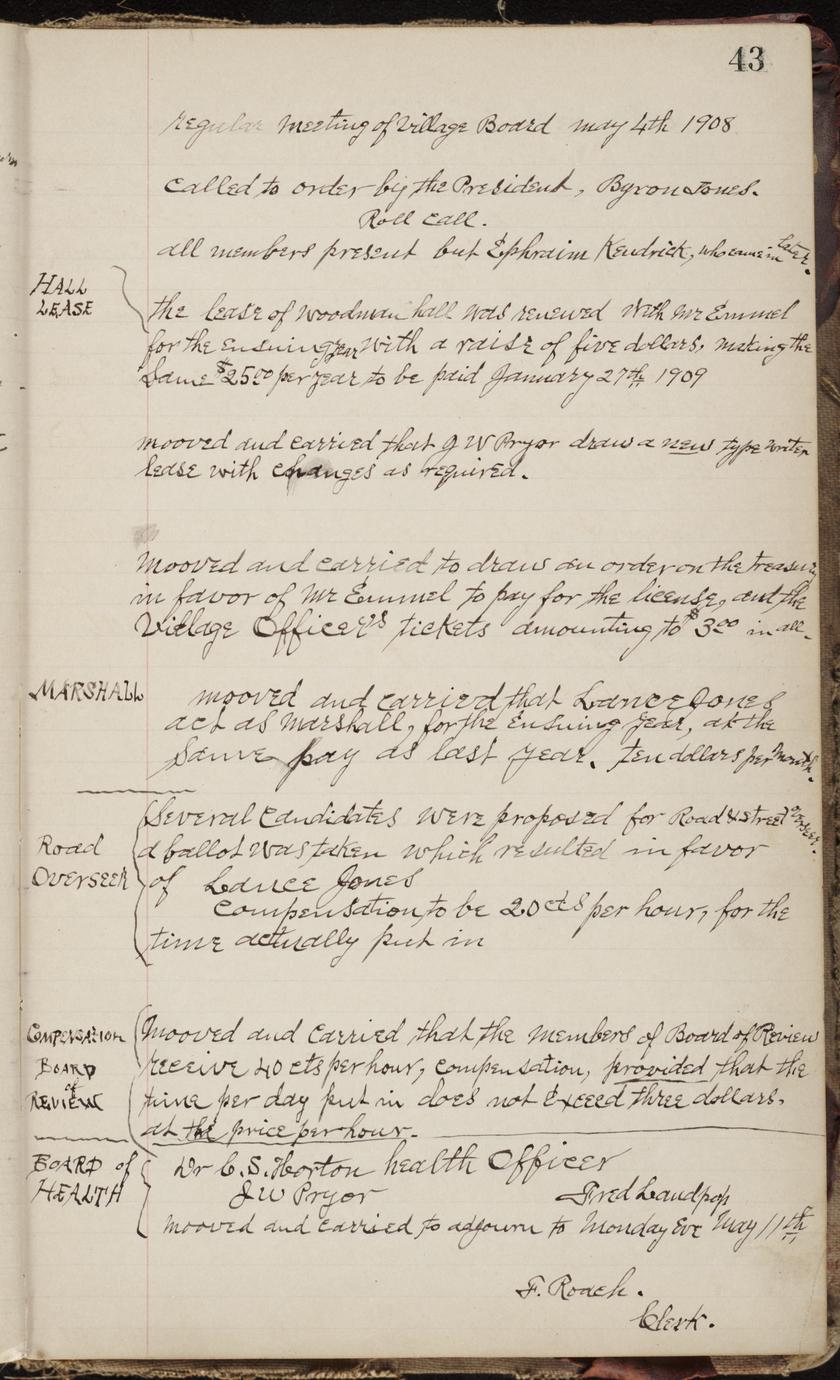 43
regular Meeting of Village Board may 4th 1908
Called to order by the President, Byron Jones.
Roll Call.
all members present but Ephraim Kendrick, who came in later.
HALL
LEASE
the lease of Woodman hall was renewed with Mr Emmel
for the ensuing year with a raise of five dollars, making the
Same $25.00 per year to be paid January 27th 1909
mooved and carried that J W Pryor draw a new type writen
lease with changes as required.
Mooved and carried to draw an order on the treasury
in favor of Mr Emmel to pay for the license, and the
Village Officers tickets amounting to $3.00 in all.
MARSHALL
mooved and carried that Lance Jones
act as Marshall, for the Ensuing year, at the
Same pay as last year. ten dollars per Month.
Road
OVERSEER
Several Candidates were proposed for Road & street overseer.
a ballot was taken which resulted in favor
of Lance Jones
Compensation, to be 20 cts per hour, for the
time actually put in
COMPENSATION
BOARD
of
REVIEW
Mooved and Carried that the Members of Board of Review
receive 40 cts per hour, compensation, provided that the
time per day put in does not Exceed three dollars.
at the price per hour.
BOARD of
HEALTH
Dr C. S. Horton health Officer
J W Pryor Fred Landpap
mooved and carried to adjourn to Monday Eve May 11th
F. Roach.
Clerk.